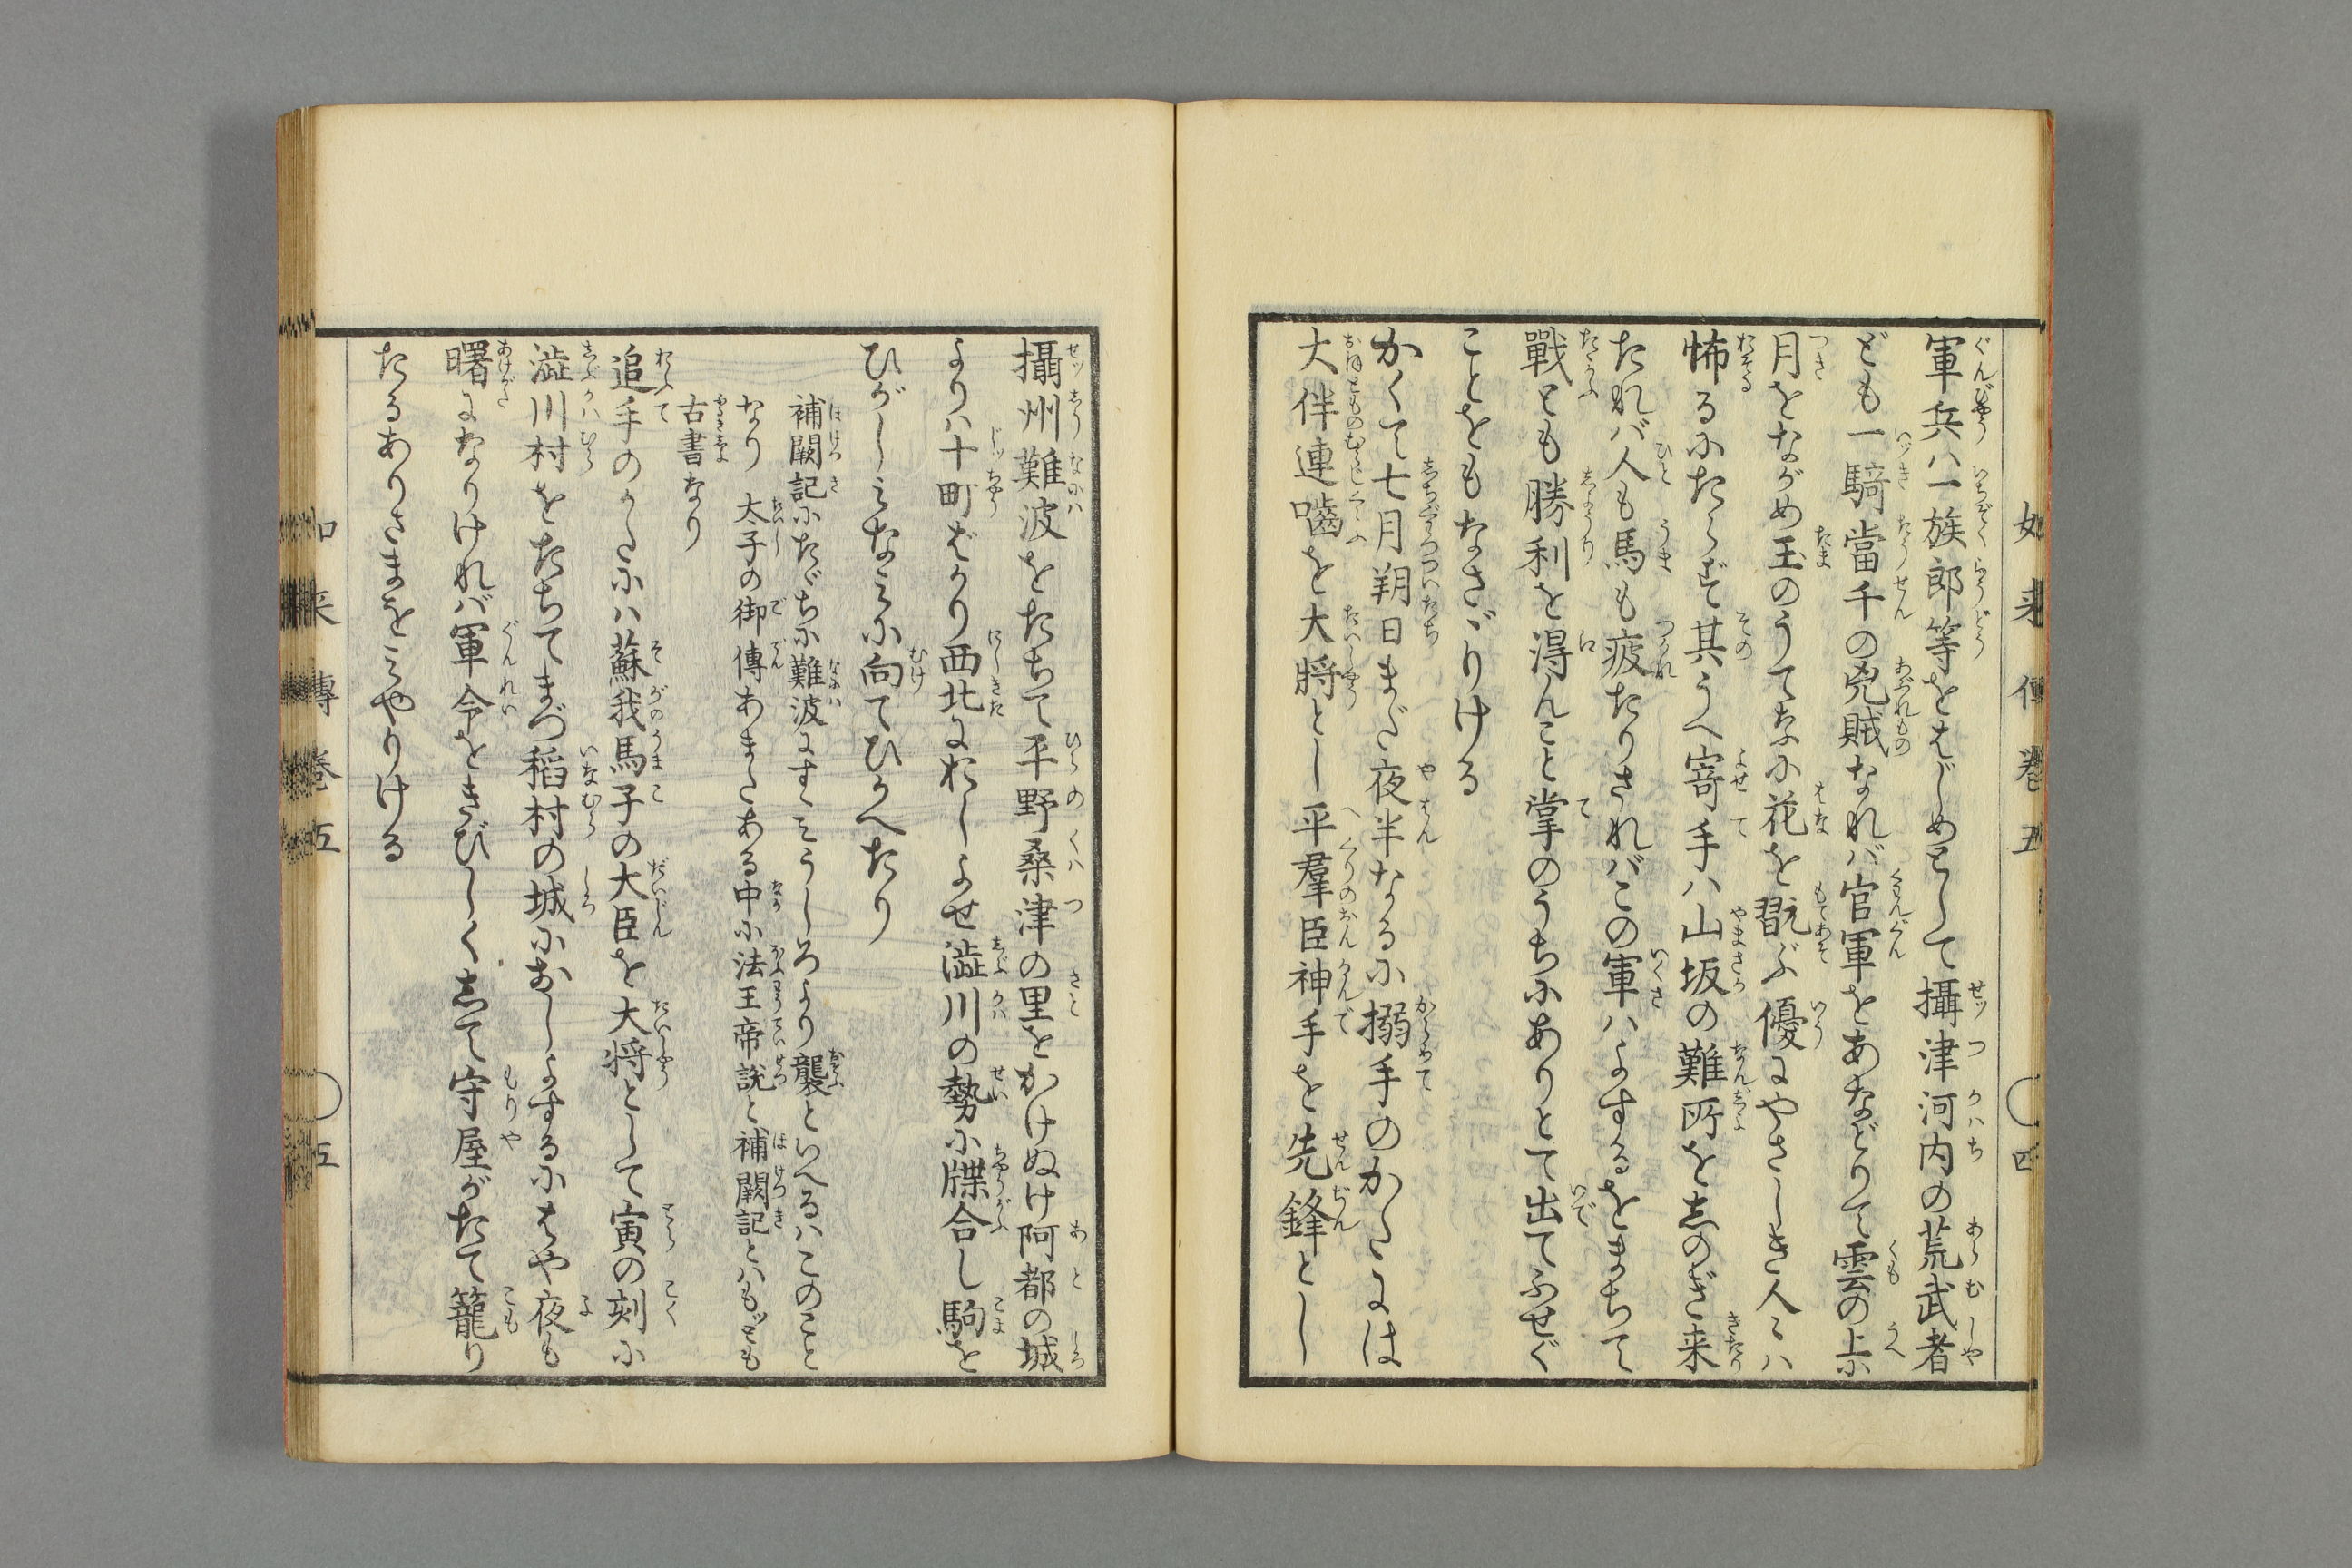 軍兵ハ一族郎等をはじめとして攝津河内の荒武者
ども一騎當千の兇賊なれバ官軍をあなどりて雲の上に
月をながめ玉のうてなに花を翫ぶ優にやさしき人々ハ
怖るにたらず其うへ寄手ハ山坂の難所をしのぎ来
たれバ人も馬も疲たりされバこの軍ハよするをまちて
戰とも勝利を得んこと掌のうちにありとて出てふせぐ
ことをもなさゞりける
かくて七月朔日まだ夜半なるに搦手のかたには
大伴連嚙を大將とし平羣臣神手を先鋒とし
攝州難波をたちて平野桑津の里をかけぬけ阿都の城
よりハ十町ばかり西北におしよせ澁川の勢に牒合し駒を
ひがしみなみに向てひかへたり
補闕記にたゞちに難波にすゝみうしろより襲といへるハこのこと
なり 太子の御傳あまたある中に法王帝説と補闕記とハもつとも
古書なり
追手のかたにハ蘇我馬子の大臣を大將として寅の刻に
澁川村をたちてまづ稻村の城におしよするにはや夜も
曙になりけれバ軍令をきびしくして守屋がたて籠り
たるありさまをみやりける
如来傳巻五 四
如来傳巻五 五